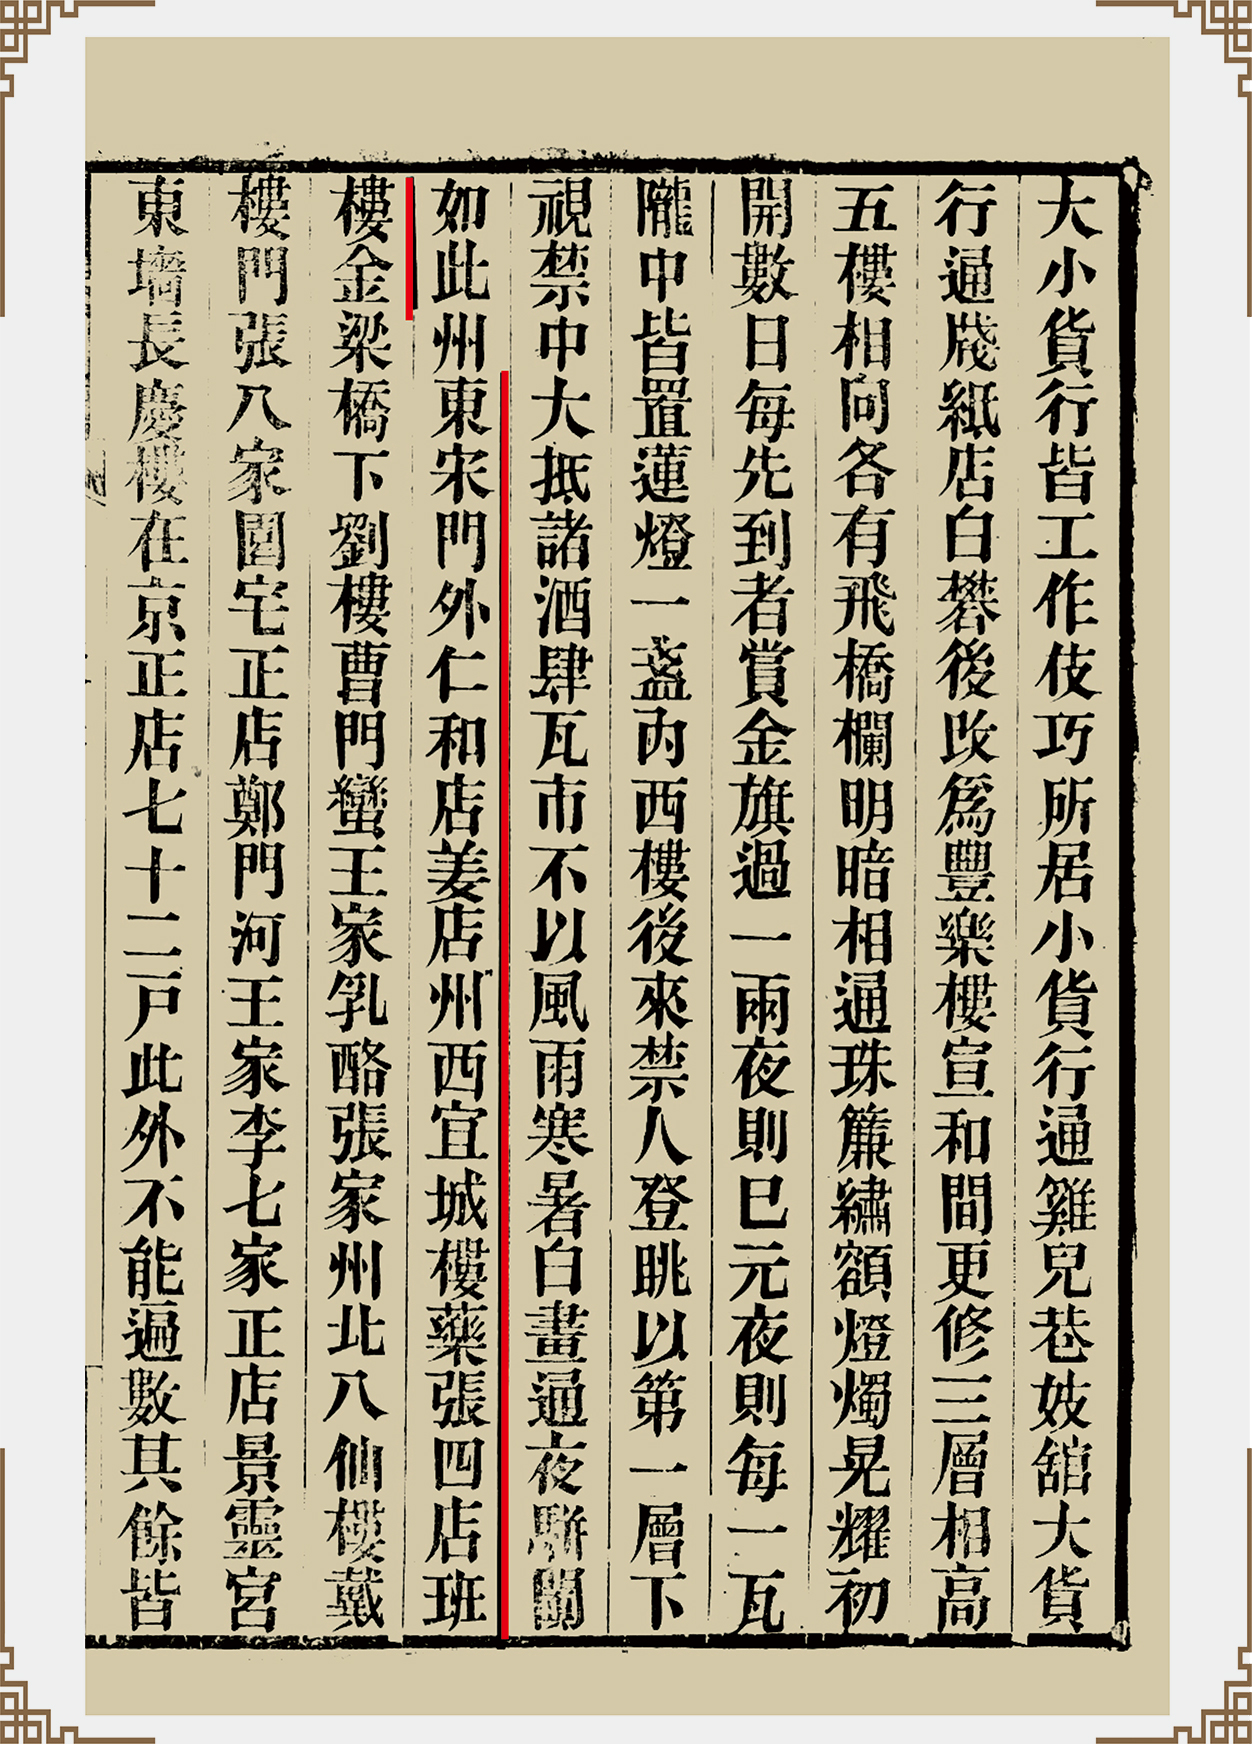 大小貨行皆工作伎巧所居小貨行通雞兒巷妓舘大貨
行通牋紙店白礬後改爲豐樂樓宣和間更修三層相高
五樓相向各有飛橋欄明暗相通珠簾繡額燈燭晃耀初
開數日每先到者賞金旗過一兩夜則已元夜則每一瓦
隴中皆置蓮燈一盞内西樓後來禁人登眺以第一層下
視禁中大抵諸酒肆瓦市不以風雨寒暑白晝通夜駢闐
如此州東宋門外仁和店姜店州西宜城樓藥張四店班
樓金梁橋下劉樓曹門蠻王家乳酪張家州北八仙樓戴
樓門張八家園宅正店鄭門河王家李七家正店景靈宮
東墻長慶樓在京正店七十二戸此外不能遍數其餘皆